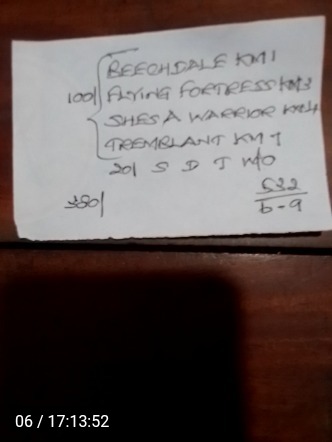 BEECHDALE KM1
100/ FLYING FORTRESS KM3
SHES A WARRIOR KM4
TREMBLANT KM 7
20/ S D T w/o
380/
532
6-9
06 / 17:13:52